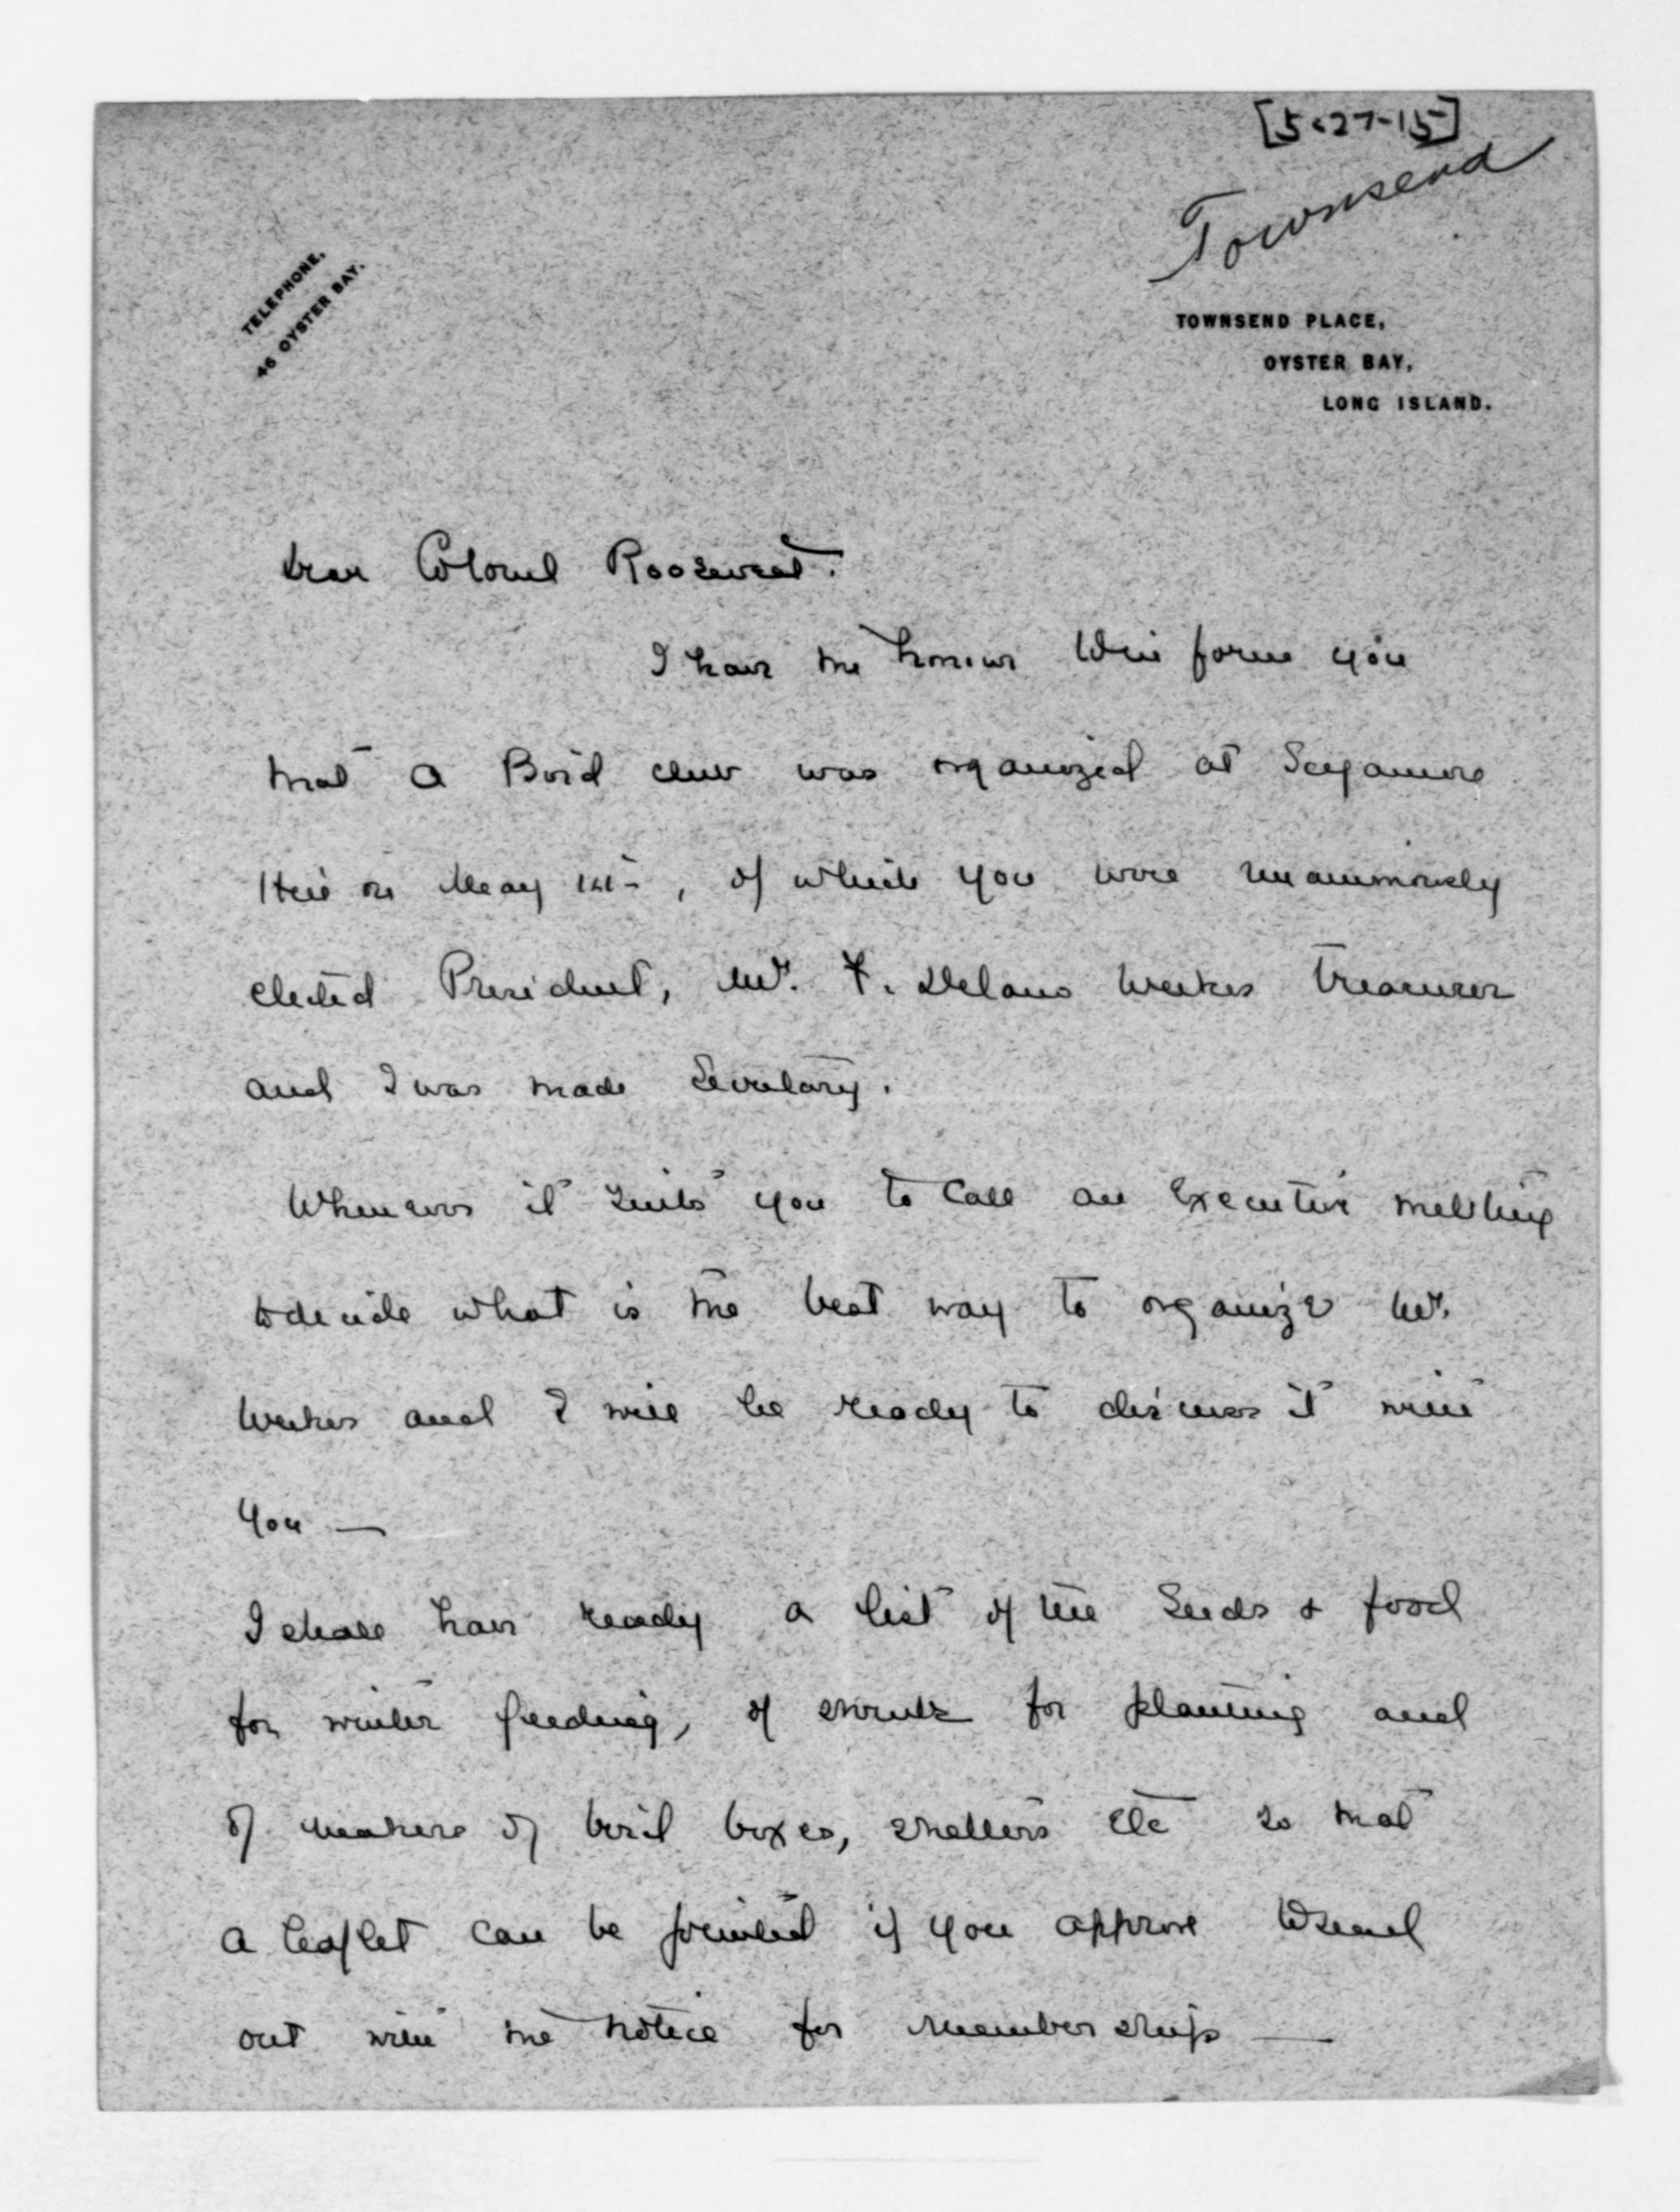 [5-27-15]
Townsend
TELEPHONE,
46 OYSTER BAY.
TOWNSEND PLACE,
OYSTER BAY,
LONG ISLAND.
Dear Colonel Roosevelt:
I have the honour to inform you
that a Bird club was organized at Sagamore
Hill on May 1st-, of which you were unanimously
elected President, Mr. F. Delano Weekes Treasurer
and I was made Secretary.
Whenever it suits you to call an Executive meeting
to decide what is the best way to organize Mr.
Weekes and I will be ready to discuss it with
you —
I shall have ready a list of the seeds & food
for winter feeding, of shrubs for planting and
of makers of bird boxes, shelters etc so that
a leaflet can be printed if you approve to send
out with the notice for membership —